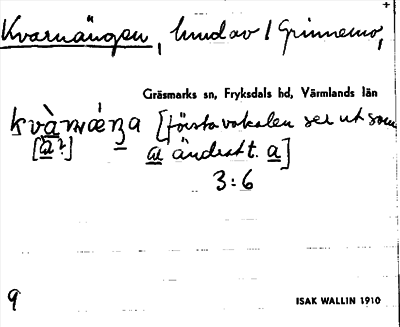 Kvarnängen, hmd av 1 Grinnemo,
Gräsmarks sn, Fryksdals hd, Värmlands län
kvàɳæ̀ŋa [första vokalen ser ut som
[a?] æ ändrat t. a]
3:6
9
ISAK WALLIN 1910